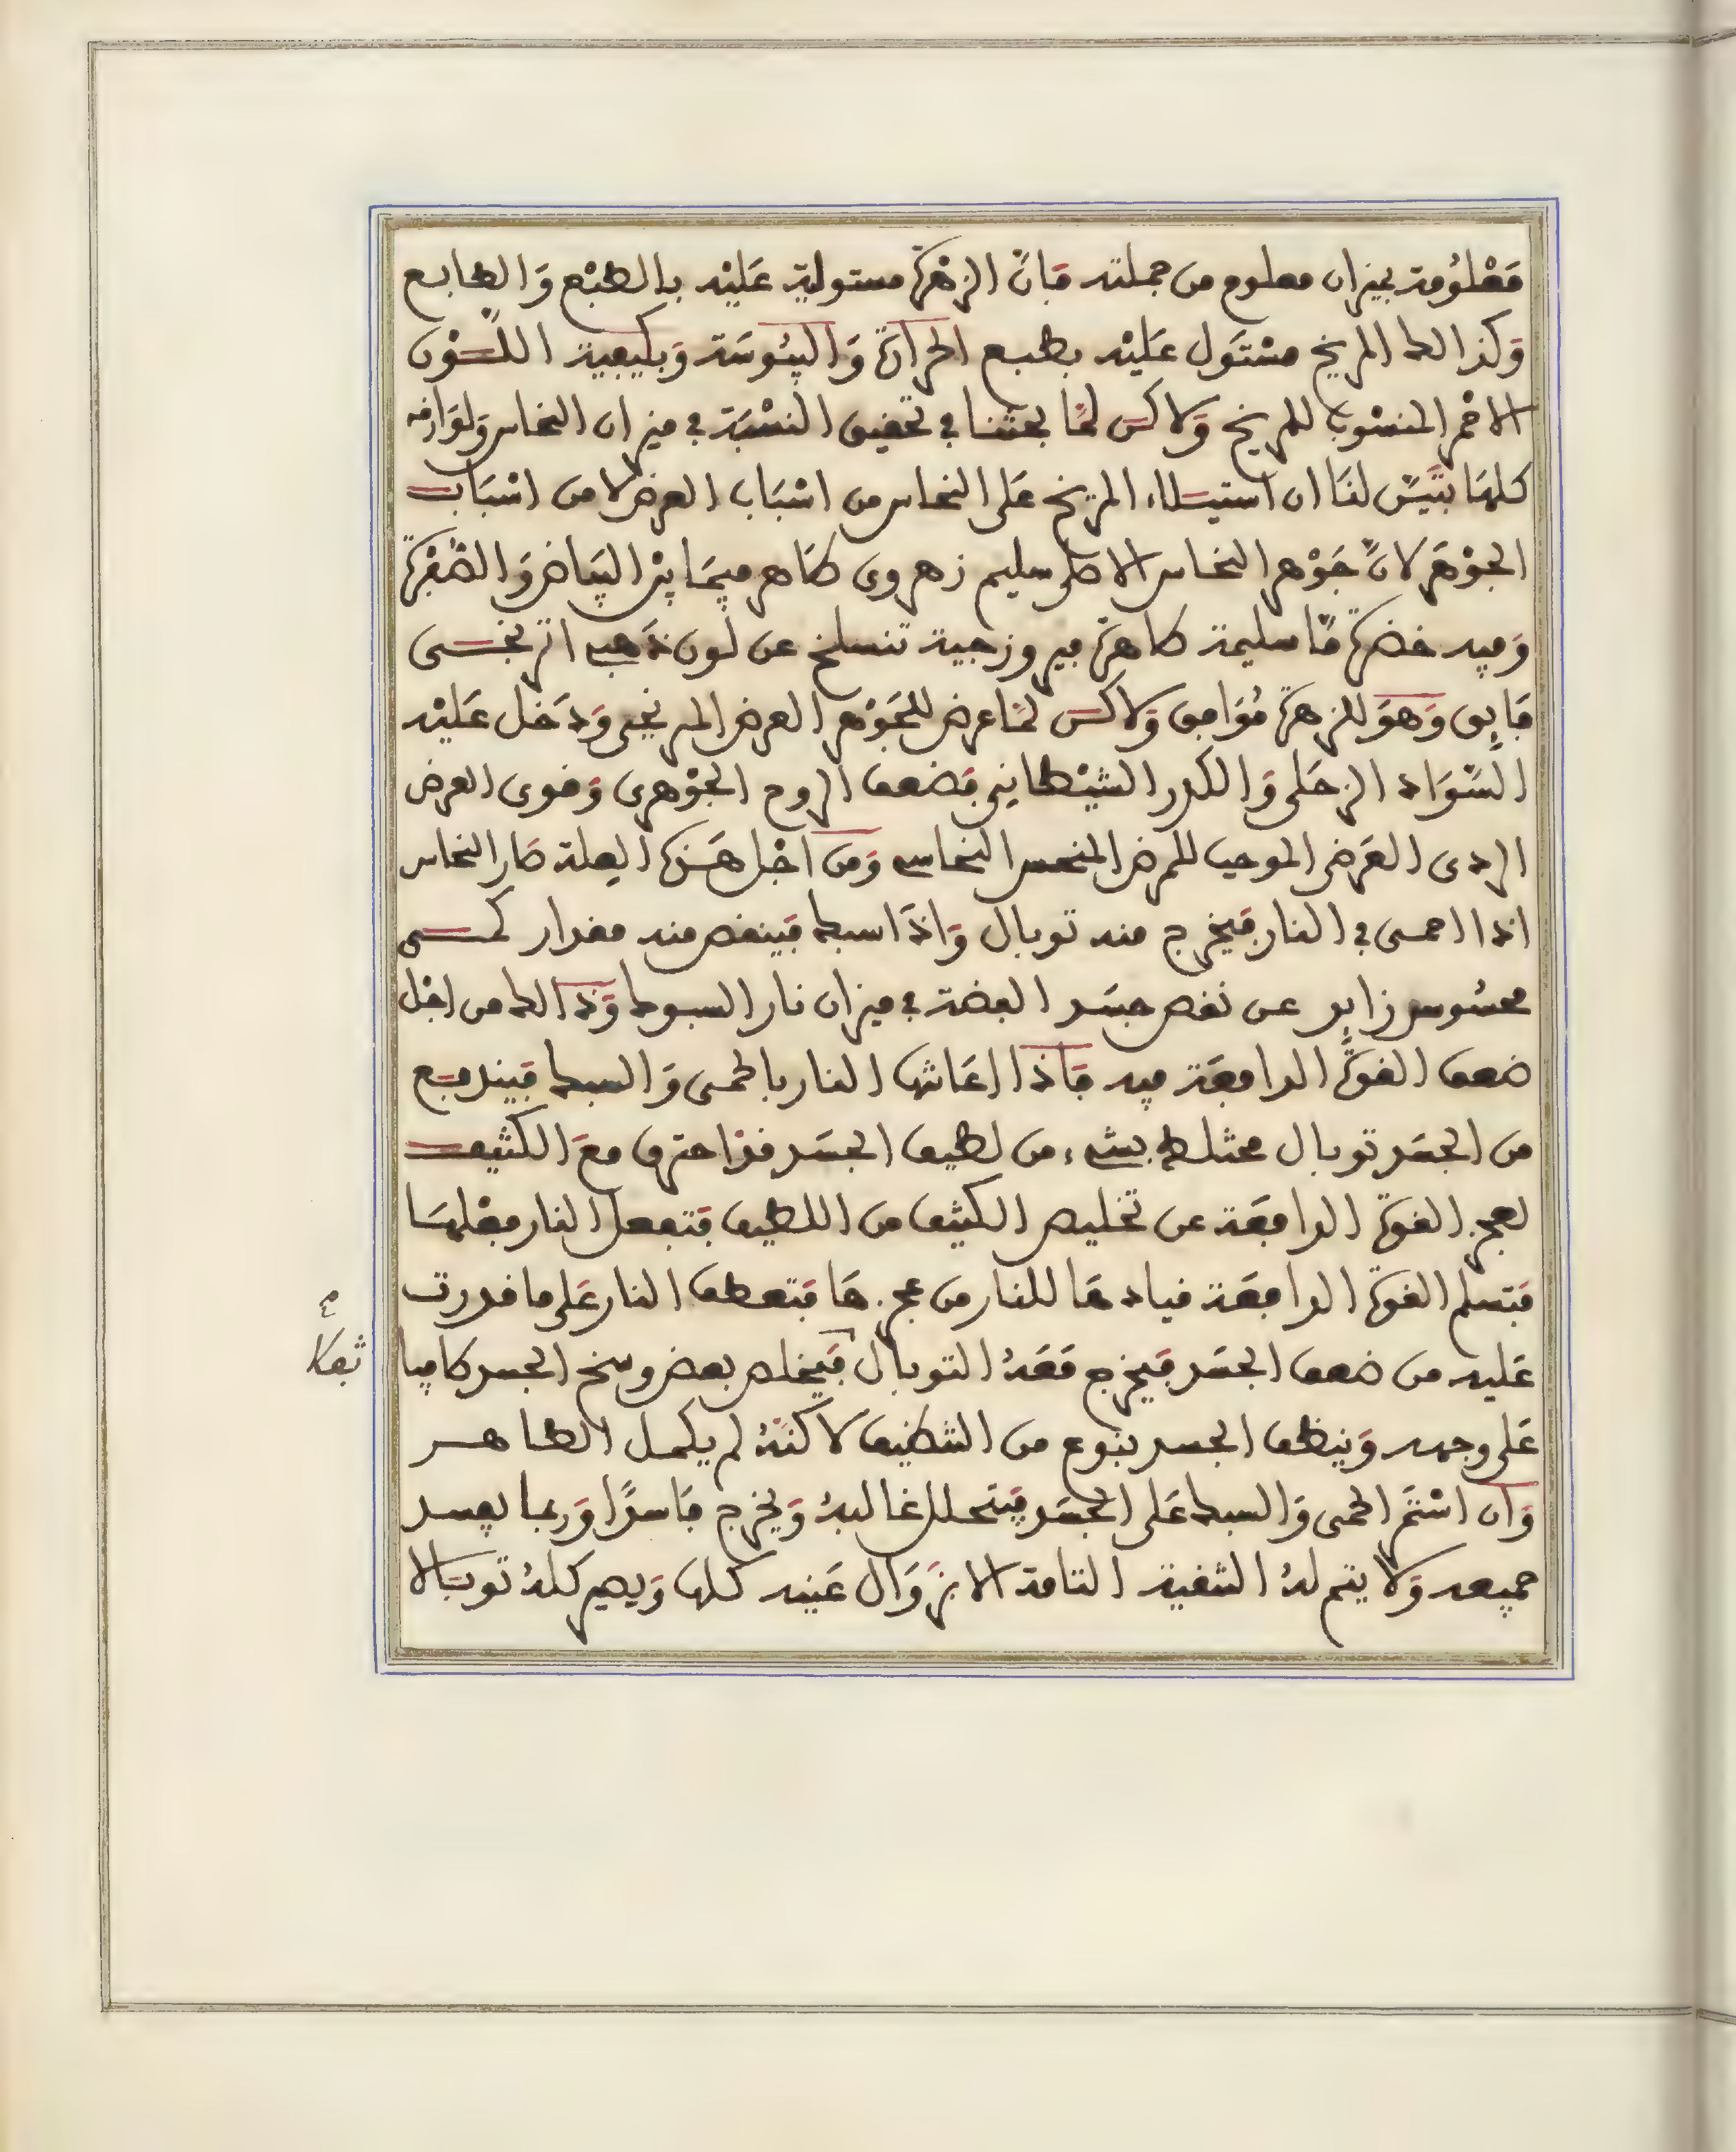 مَعْلُومة بميزان معلوم من جملته فإنّ الزهَرة مستولية عَليْه بالطبْع وَالطابع
وَكذالك المريخ مسْتَول عَليْه بطبع الحرارة وَاليبُوسَة وَبكيفية اللَّوْن
الاحْمر المنسُوب للمريخ وَلاكن لمَّا بحثنا في تحقيق النسْبَة في ميزان النحاس وَلوَازمه
كلهَا تبَيَّن لنَا ان استيلاء المريخ عَلى النحاس من اسْبَاب العرض لا من اسْبَاب
الجوْهَر لانّ جَوْهر النحاس الاصلى سليم زهروي ظاهر فيمَا بيْن البيَاض وَالصُّفْرة
وَفيه خضرة مّا سليمة ظاهرة فيروزجية تنسلخ عن لون ذهب اترنجى
فَايق وَهوَ للزهرة مُوَافق وَلاكن لمّا عرض للجَوْهر العرض المريخى وَدَخل عَليْه
السّوَاد الزحَلى وَالكدر الشيْطاني فَضعف الروح الجوْهري وَقوى العرض
الردى العَرضى الموجب للمرض المنحس النحاس وَمن اجْل هَذه العلة صَار النحاس
اذا احمى في النار فيَخرج منه توبال وَاذَا سبك فَينقص منه مقدار
محسُوس زايد عن نقص جسَد الفضة في ميزان نار السبوك وَذالك من اجْل
ضعف القوّة الدافعَة فيه فَاذا اعَانتها النار بالحمى وَالسبك فَيندفع
من الجسَد توبال مختلط بشيء من لطيف الجسَد قد احترق معَ الكثيف
لعجز القوة الدافعَة عن تخليص الكثيف من اللطيف فَتفعل النار فعْلهَا
فَتسلم القوة الدافعَة قيادهَا للنار من عجزهَا فَتعطف النار عَلى ما قدرت
عَليه من ضعف الجسَد فيَخرج مَعَهُ التوبال فيَخلص بعض وسخ الجسد كافيا
عَلى وجهه وَينظف الجسد بنوع من التنظيف لاكنَّهُ لم يكمل الظاهر
وَان اسْتمَر الحمى وَالسبك عَلى الجسَد فيَتحلل غالبهُ وَيخرج فَاسدًا وَربما يفسد
جميعه وَلا يتم لهُ التنقية التامة الا بزوَال عَينه كلها وَيصير كلهُ توبَالا